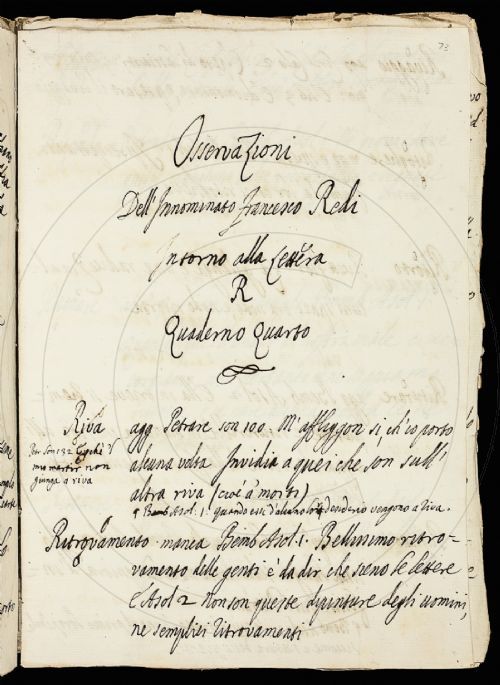 73
Osservazioni
Dell'Innominato Francesco Redi
Intorno alla Lettera
R
Quaderno Quarto
Riva agg. Petrarc son 100. M'affliggon si, ch'io porto
alcuna volta Invidia a quei che son sull'
altra riva (cioè a' morti)
Petr. son. 132.
ma martir non
giunga a riva
Bemb. Asol. 1. quando essi d'alcuno lor desiderio vengono a riva.
Ritrovamento manca Bemb Asol. 1. Bellissimo ritro-
vamento delle genti è da dir che sieno le lettere
E Asol 2 Non son queste dipinture degli uomini,
ne semplici ritrovamenti